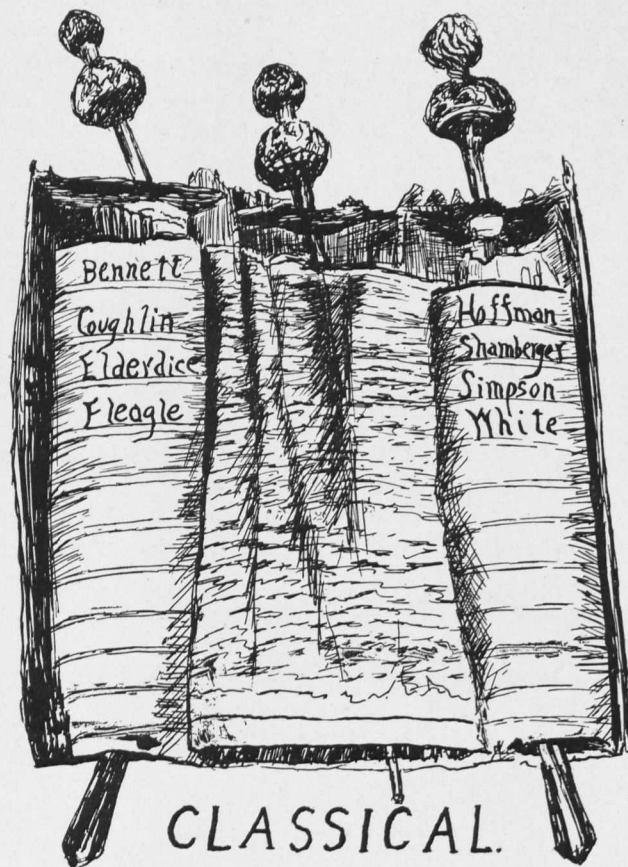 Bennett
Coughlin
Elderdice
Fleagle
Hoffman
Shamberger
Simpson
White
CLASSICAL.